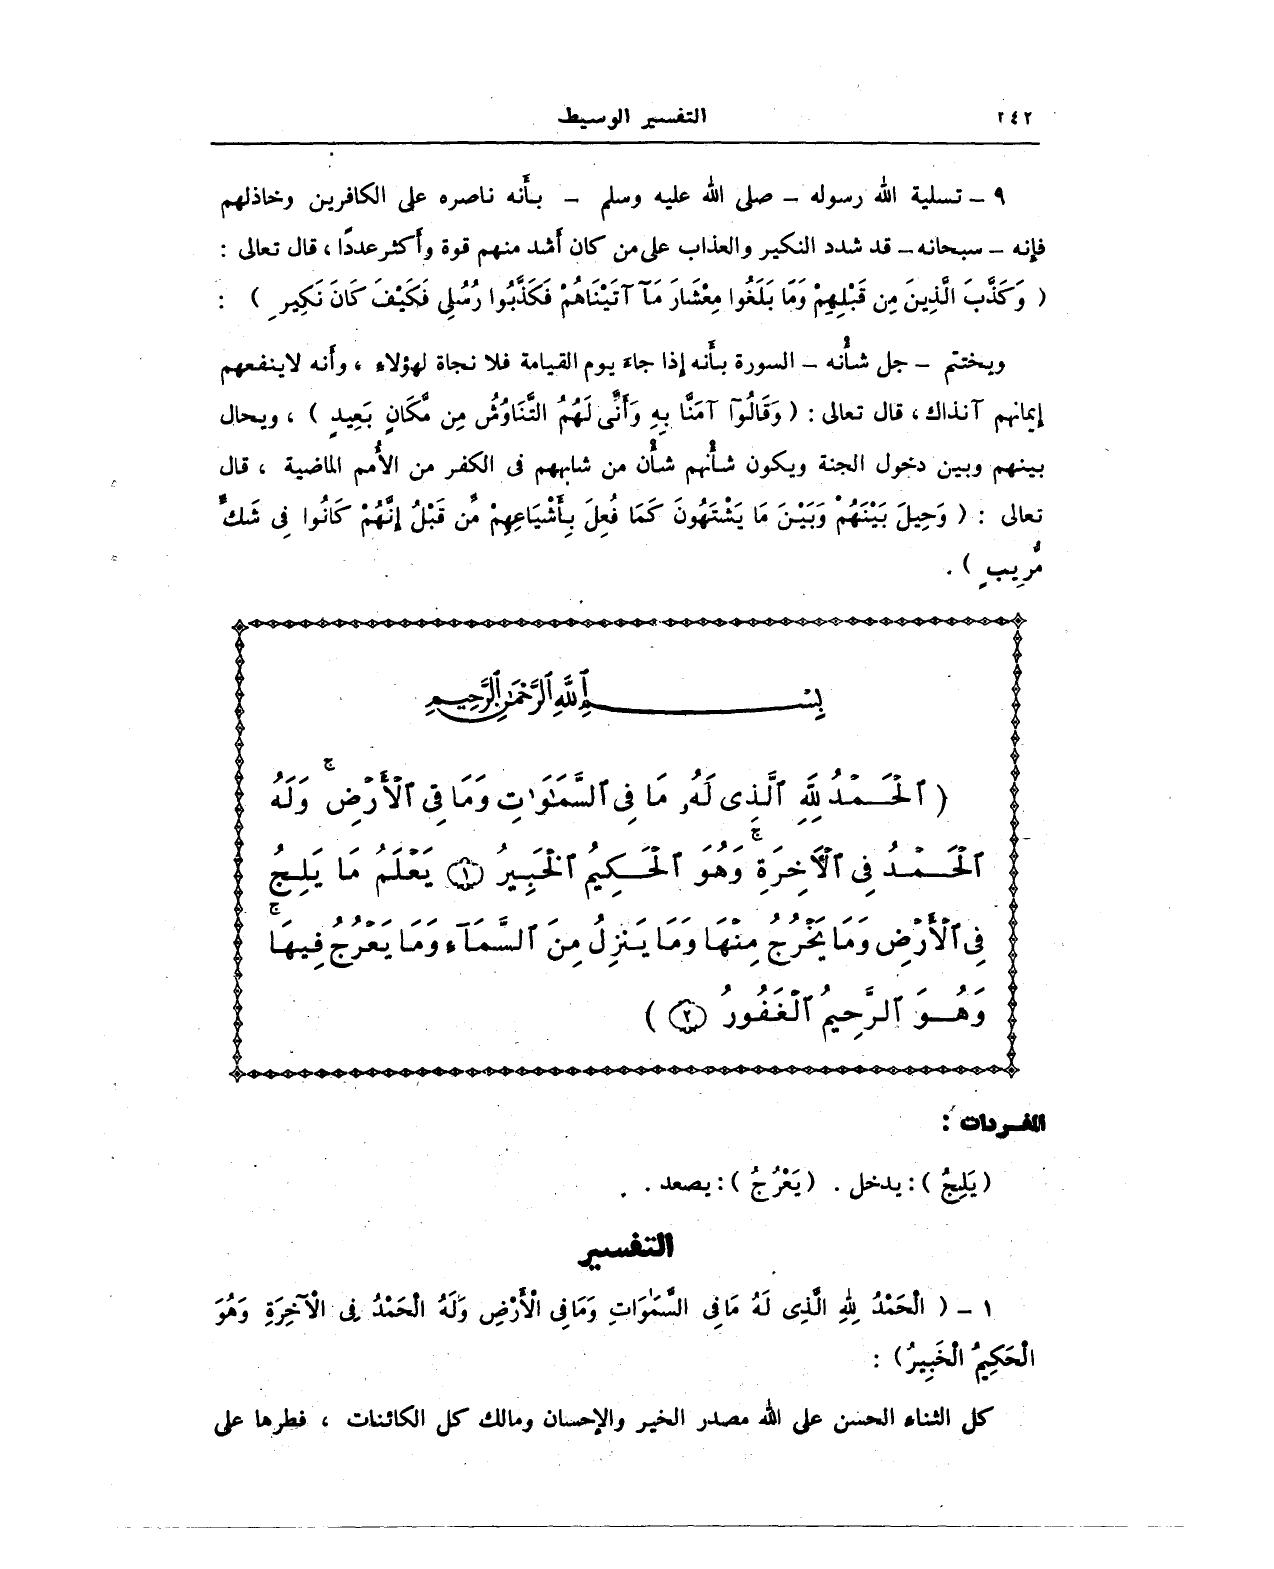 ٢٤٢ التفسير الوسيط
٩ – تسلية الله رسوله – صلى الله عليه وسلم – بأنه ناصره على الكافرين وخاذلهم
فإنه – سبحانه – قد شدد النكير والعذاب على من كان أشد منهم قوة وأكثر عددًا ، قال تعالى :
( وَكَذَّبَ الَّذِينَ مِن قَبْلِهِمْ وَمَا بَلَغُوا مِعْشَارَ مَآ آتَيْنَاهُمْ فَكَذَّبُوا رُسُلِى فَكَيْفَ كَانَ نَكِيرِ ) :
ويختتم – جل شأنه – السورة بأنه إذا جاء يوم القيامة فلا نجاة لهؤلاء ، وأنه لاينفعهم
إيمانهم آنذاك ، قال تعالى : ( وَقَالُوٓا آمَنَّا بِهِ وَأَنَّى لَهُمُ التَّنَاوُشُ مِن مَّكَانٍ بَعِيدٍ ) ، ويحال
بينهم وبين دخول الجنة ويكون شأنهم شأن من شابههم فى الكفر من الأمم الماضية ، قال
تعالى : ( وَحِيلَ بَيْنَهُمْ وَبَيْنَ مَا يَشْتَهُونَ كَمَا فُعِلَ بِأَشْيَاعِهِمْ مِّن قَبْلُ إِنَّهُمْ كَانُوا فِى شَكٍّ
مُّرِيبٍ ) .
بِسْمِ ٱللَّهِ ٱلرَّحْمَٰنِ ٱلرَّحِيمِ
( ٱلْحَمْدُ لِلَّهِ ٱلَّذِى لَهُۥ مَا فِى ٱلسَّمَٰوَٰتِ وَمَا فِى ٱلْأَرْضِ ۚ وَلَهُ
ٱلْحَمْدُ فِى ٱلْآخِرَةِ ۚ وَهُوَ ٱلْحَكِيمُ ٱلْخَبِيرُ ﴿١﴾ يَعْلَمُ مَا يَلِجُ
فِى ٱلْأَرْضِ وَمَا يَخْرُجُ مِنْهَا وَمَا يَنزِلُ مِنَ ٱلسَّمَآءِ وَمَا يَعْرُجُ فِيهَا ۚ
وَهُوَ ٱلرَّحِيمُ ٱلْغَفُورُ ﴿٢﴾ )
المفردات :
( يَلِجُ ) : يدخل . ( يَعْرُجُ ) : يصعد .
التفسير
١ – ( الْحَمْدُ لِلَّهِ الَّذِى لَهُ مَا فِى السَّمَٰوَاتِ وَمَا فِى الْأَرْضِ وَلَهُ الْحَمْدُ فِى الْآخِرَةِ وَهُوَ
الْحَكِيمُ الْخَبِيرُ ) :
كل الثناء الحسن على الله مصدر الخير والإحسان ومالك كل الكائنات ، فطرها على